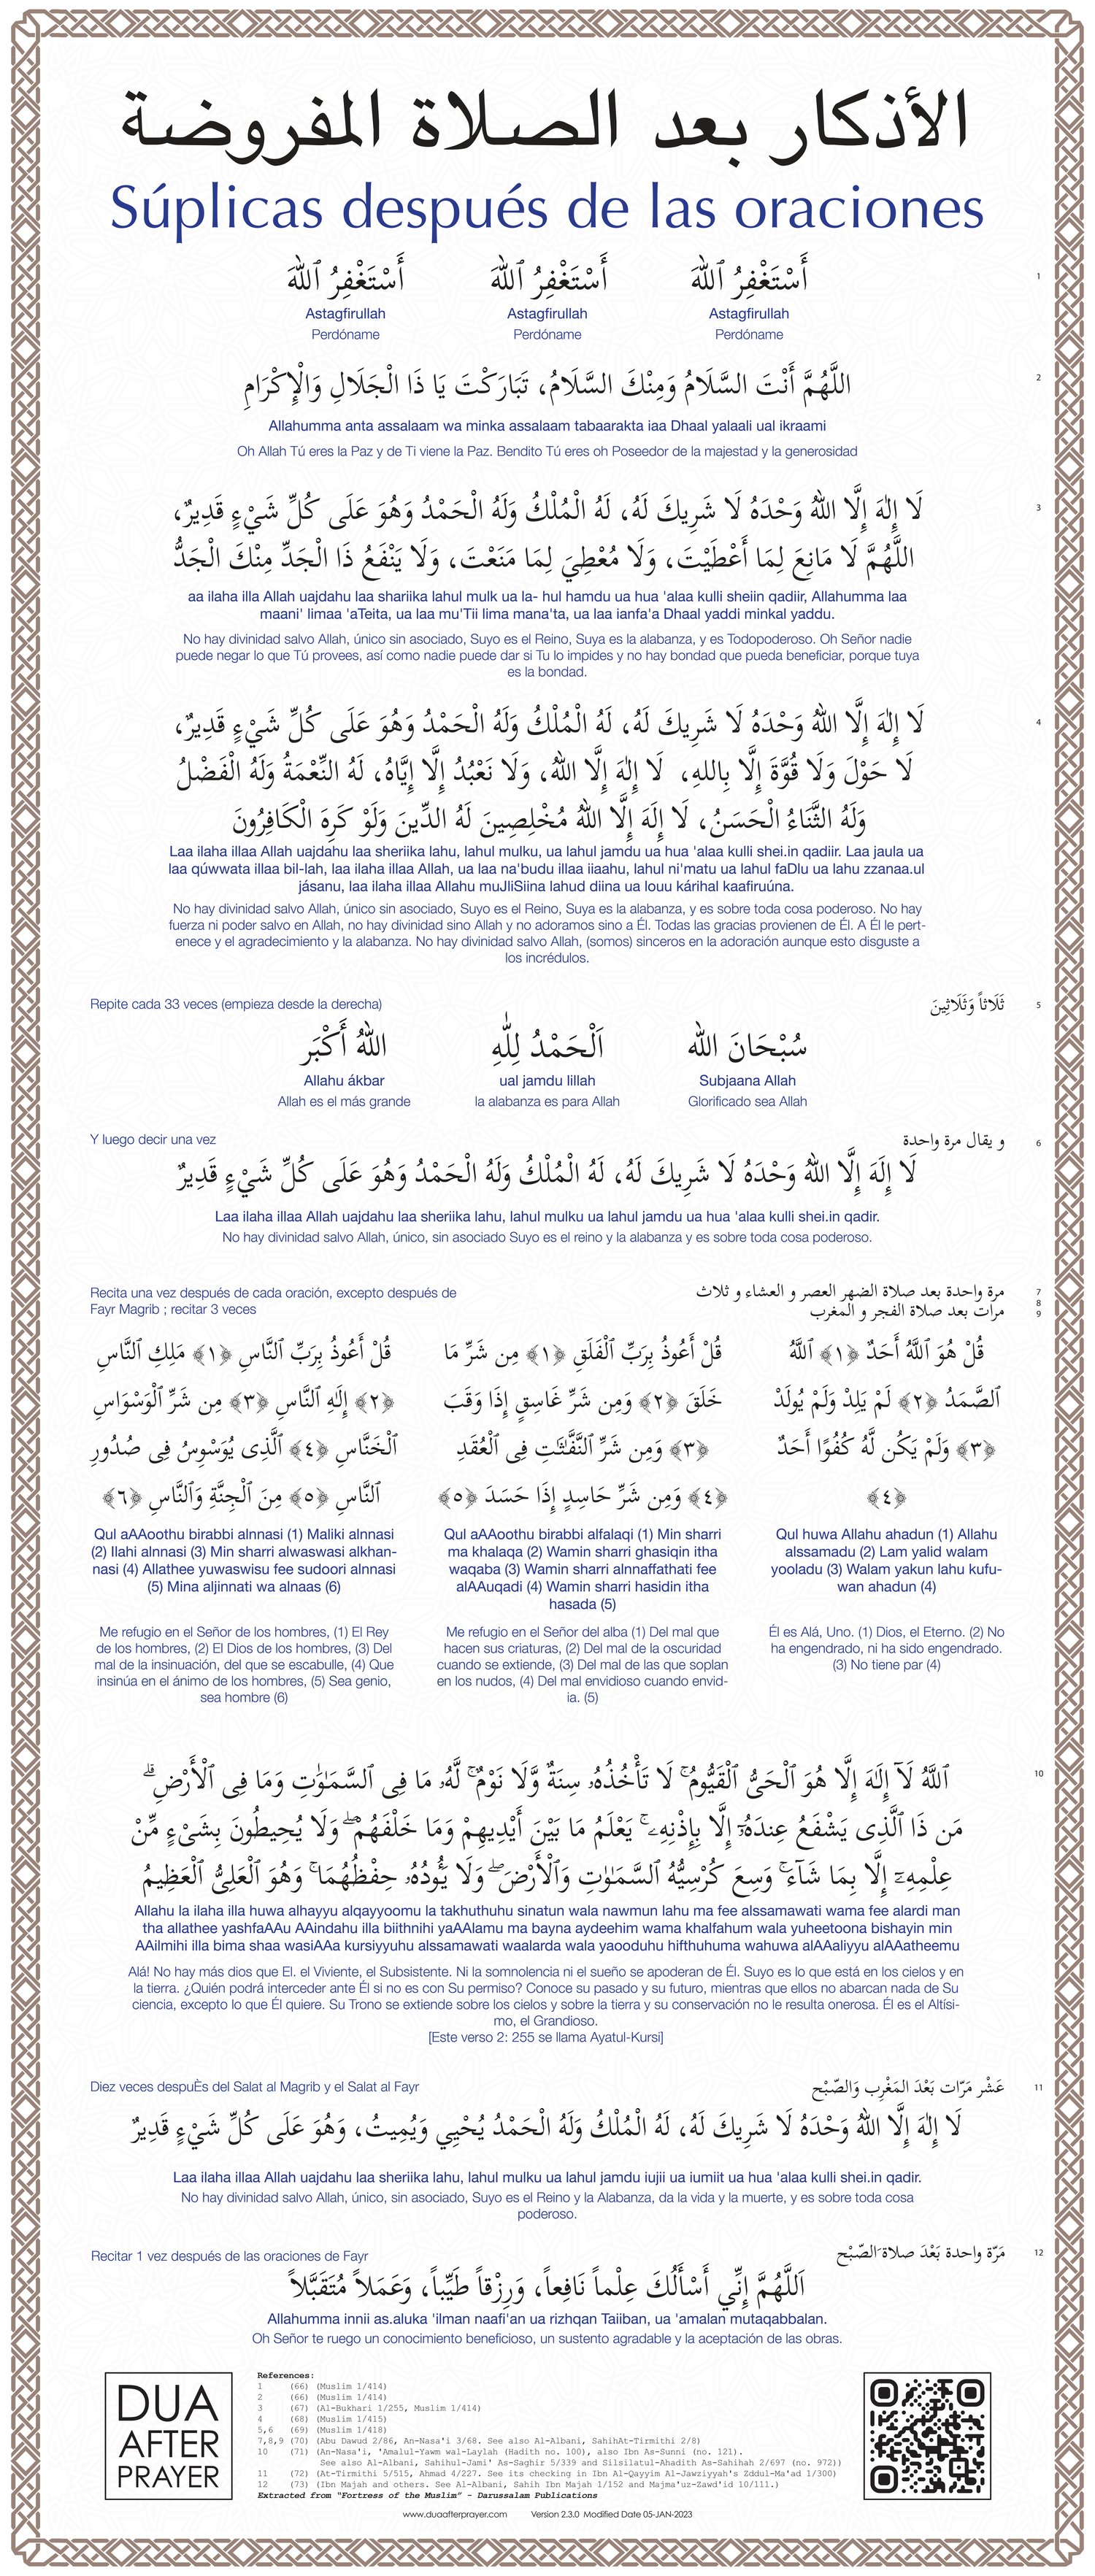 الأذكار بعد الصلاة المفروضة
Súplicas después de las oraciones
1
أَسْتَغْفِرُ ٱللهَ أَسْتَغْفِرُ ٱللهَ أَسْتَغْفِرُ ٱللهَ
Astagfirullah Astagfirullah Astagfirullah
Perdóname Perdóname Perdóname
2
اللَّهُمَّ أَنْتَ السَّلَامُ وَمِنْكَ السَّلَامُ، تَبَارَكْتَ يَا ذَا الْجَلَالِ وَالْإِكْرَامِ
Allahumma anta assalaam wa minka assalaam tabaarakta iaa Dhaal yalaali ual ikraami
Oh Allah Tú eres la Paz y de Ti viene la Paz. Bendito Tú eres oh Poseedor de la majestad y la generosidad
3
لَا إِلٰهَ إِلَّا اللهُ وَحْدَهُ لَا شَرِيكَ لَهُ، لَهُ الْمُلْكُ وَلَهُ الْحَمْدُ وَهُوَ عَلَى كُلِّ شَيْءٍ قَدِيرٌ،
اللَّهُمَّ لَا مَانِعَ لِمَا أَعْطَيْتَ، وَلَا مُعْطِيَ لِمَا مَنَعْتَ، وَلَا يَنْفَعُ ذَا الْجَدِّ مِنْكَ الْجَدُّ
aa ilaha illa Allah uajdahu laa shariika lahul mulk ua la- hul hamdu ua hua 'alaa kulli sheiin qadiir, Allahumma laa
maani' limaa 'aTeita, ua laa mu'Tii lima mana'ta, ua laa ianfa'a Dhaal yaddi minkal yaddu.
No hay divinidad salvo Allah, único sin asociado, Suyo es el Reino, Suya es la alabanza, y es Todopoderoso. Oh Señor nadie
puede negar lo que Tú provees, así como nadie puede dar si Tu lo impides y no hay bondad que pueda beneficiar, porque tuya
es la bondad.
4
لَا إِلٰهَ إِلَّا اللهُ وَحْدَهُ لَا شَرِيكَ لَهُ، لَهُ الْمُلْكُ وَلَهُ الْحَمْدُ وَهُوَ عَلَى كُلِّ شَيْءٍ قَدِيرٌ،
لَا حَوْلَ وَلَا قُوَّةَ إِلَّا بِاللهِ، لَا إِلٰهَ إِلَّا اللهُ، وَلَا نَعْبُدُ إِلَّا إِيَّاهُ، لَهُ النِّعْمَةُ وَلَهُ الْفَضْلُ
وَلَهُ الثَّنَاءُ الْحَسَنُ، لَا إِلَهَ إِلَّا اللهُ مُخْلِصِينَ لَهُ الدِّينَ وَلَوْ كَرِهَ الْكَافِرُونَ
Laa ilaha illaa Allah uajdahu laa sheriika lahu, lahul mulku, ua lahul jamdu ua hua 'alaa kulli shei.in qadiir. Laa jaula ua
laa qúwwata illaa bil-lah, laa ilaha illaa Allah, ua laa na'budu illaa iiaahu, lahul ni'matu ua lahul faDlu ua lahu zzanaa.ul
jásanu, laa ilaha illaa Allahu muJliSiina lahud diina ua louu kárihal kaafiruúna.
No hay divinidad salvo Allah, único sin asociado, Suyo es el Reino, Suya es la alabanza, y es sobre toda cosa poderoso. No hay
fuerza ni poder salvo en Allah, no hay divinidad sino Allah y no adoramos sino a Él. Todas las gracias provienen de Él. A Él le pert-
enece y el agradecimiento y la alabanza. No hay divinidad salvo Allah, (somos) sinceros en la adoración aunque esto disguste a
los incrédulos.
Repite cada 33 veces (empieza desde la derecha) ثَلَاثاً وَثَلَاثِينَ 5
سُبْحَانَ الله اَلْحَمْدُ لِلّٰهِ اللهُ أَكْبَر
Allahu ákbar ual jamdu lillah Subjaana Allah
Allah es el más grande la alabanza es para Allah Glorificado sea Allah
Y luego decir una vez و يقال مرة واحدة 6
لَا إِلَهَ إِلَّا اللهُ وَحْدَهُ لَا شَرِيكَ لَهُ، لَهُ الْمُلْكُ وَلَهُ الْحَمْدُ وَهُوَ عَلَى كُلِّ شَيْءٍ قَدِيرٌ
Laa ilaha illaa Allah uajdahu laa sheriika lahu, lahul mulku ua lahul jamdu ua hua 'alaa kulli shei.in qadir.
No hay divinidad salvo Allah, único, sin asociado Suyo es el reino y la alabanza y es sobre toda cosa poderoso.
Recita una vez después de cada oración, excepto después de
Fayr Magrib ; recitar 3 veces
مرة واحدة بعد صلاة الضهر العصر و العشاء و ثلاث
مرات بعد صلاة الفجر و المغرب
7
8
9
قُلْ هُوَ ٱللَّهُ أَحَدٌ ﴿١﴾ ٱللَّهُ
ٱلصَّمَدُ ﴿٢﴾ لَمْ يَلِدْ وَلَمْ يُولَدْ
﴿٣﴾ وَلَمْ يَكُن لَّهُ كُفُوًا أَحَدٌ
﴿٤﴾
Qul huwa Allahu ahadun (1) Allahu
alssamadu (2) Lam yalid walam
yooladu (3) Walam yakun lahu kufu-
wan ahadun (4)
Él es Alá, Uno. (1) Dios, el Eterno. (2) No
ha engendrado, ni ha sido engendrado.
(3) No tiene par (4)
قُلْ أَعُوذُ بِرَبِّ ٱلْفَلَقِ ﴿١﴾ مِن شَرِّ مَا
خَلَقَ ﴿٢﴾ وَمِن شَرِّ غَاسِقٍ إِذَا وَقَبَ
﴿٣﴾ وَمِن شَرِّ ٱلنَّفَّٰثَٰتِ فِى ٱلْعُقَدِ
﴿٤﴾ وَمِن شَرِّ حَاسِدٍ إِذَا حَسَدَ ﴿٥﴾
Qul aAAoothu birabbi alfalaqi (1) Min sharri
ma khalaqa (2) Wamin sharri ghasiqin itha
waqaba (3) Wamin sharri alnnaffathati fee
alAAuqadi (4) Wamin sharri hasidin itha
hasada (5)
Me refugio en el Señor del alba (1) Del mal que
hacen sus criaturas, (2) Del mal de la oscuridad
cuando se extiende, (3) Del mal de las que soplan
en los nudos, (4) Del mal envidioso cuando envid-
ia. (5)
قُلْ أَعُوذُ بِرَبِّ ٱلنَّاسِ ﴿١﴾ مَلِكِ ٱلنَّاسِ
﴿٢﴾ إِلَٰهِ ٱلنَّاسِ ﴿٣﴾ مِن شَرِّ ٱلْوَسْوَاسِ
ٱلْخَنَّاسِ ﴿٤﴾ ٱلَّذِى يُوَسْوِسُ فِى صُدُورِ
ٱلنَّاسِ ﴿٥﴾ مِنَ ٱلْجِنَّةِ وَٱلنَّاسِ ﴿٦﴾
Qul aAAoothu birabbi alnnasi (1) Maliki alnnasi
(2) Ilahi alnnasi (3) Min sharri alwaswasi alkhan-
nasi (4) Allathee yuwaswisu fee sudoori alnnasi
(5) Mina aljinnati wa alnaas (6)
Me refugio en el Señor de los hombres, (1) El Rey
de los hombres, (2) El Dios de los hombres, (3) Del
mal de la insinuación, del que se escabulle, (4) Que
insinúa en el ánimo de los hombres, (5) Sea genio,
sea hombre (6)
10
ٱللَّهُ لَآ إِلَٰهَ إِلَّا هُوَ ٱلْحَىُّ ٱلْقَيُّومُ ۚ لَا تَأْخُذُهُۥ سِنَةٌ وَلَا نَوْمٌ ۚ لَّهُۥ مَا فِى ٱلسَّمَٰوَٰتِ وَمَا فِى ٱلْأَرْضِ ۗ
مَن ذَا ٱلَّذِى يَشْفَعُ عِندَهُۥٓ إِلَّا بِإِذْنِهِۦ ۚ يَعْلَمُ مَا بَيْنَ أَيْدِيهِمْ وَمَا خَلْفَهُمْ ۖ وَلَا يُحِيطُونَ بِشَىْءٍ مِّنْ
عِلْمِهِۦٓ إِلَّا بِمَا شَآءَ ۚ وَسِعَ كُرْسِيُّهُ ٱلسَّمَٰوَٰتِ وَٱلْأَرْضَ ۖ وَلَا يَـُٔودُهُۥ حِفْظُهُمَا ۚ وَهُوَ ٱلْعَلِىُّ ٱلْعَظِيمُ
Allahu la ilaha illa huwa alhayyu alqayyoomu la takhuthuhu sinatun wala nawmun lahu ma fee alssamawati wama fee alardi man
tha allathee yashfaAAu AAindahu illa biithnihi yaAAlamu ma bayna aydeehim wama khalfahum wala yuheetoona bishayin min
AAilmihi illa bima shaa wasiAAa kursiyyuhu alssamawati waalarda wala yaooduhu hifthuhuma wahuwa alAAaliyyu alAAatheemu
Alá! No hay más dios que El. el Viviente, el Subsistente. Ni la somnolencia ni el sueño se apoderan de Él. Suyo es lo que está en los cielos y en
la tierra. ¿Quién podrá interceder ante Él si no es con Su permiso? Conoce su pasado y su futuro, mientras que ellos no abarcan nada de Su
ciencia, excepto lo que Él quiere. Su Trono se extiende sobre los cielos y sobre la tierra y su conservación no le resulta onerosa. Él es el Altísi-
mo, el Grandioso.
[Este verso 2: 255 se llama Ayatul-Kursi]
Diez veces despuÈs del Salat al Magrib y el Salat al Fayr عَشْر مَرّات بَعْدَ المَغْرِب وَالصّبْح 11
لَا إِلٰهَ إِلَّا اللهُ وَحْدَهُ لَا شَرِيكَ لَهُ، لَهُ الْمُلْكُ وَلَهُ الْحَمْدُ يُحْيِي وَيُمِيتُ، وَهُوَ عَلَى كُلِّ شَيْءٍ قَدِيرٌ
Laa ilaha illaa Allah uajdahu laa sheriika lahu, lahul mulku ua lahul jamdu iujii ua iumiit ua hua 'alaa kulli shei.in qadir.
No hay divinidad salvo Allah, único, sin asociado, Suyo es el Reino y la Alabanza, da la vida y la muerte, y es sobre toda cosa
poderoso.
Recitar 1 vez después de las oraciones de Fayr مَرّة واحدة بَعْدَ صلاة َالصّبْح 12
اَللَّهُمَّ إِنِّي أَسْأَلُكَ عِلْماً نَافِعاً، وَرِزْقاً طَيِّباً، وَعَمَلاً مُتَقَبَّلاً
Allahumma innii as.aluka 'ilman naafi'an ua rizhqan Taiiban, ua 'amalan mutaqabbalan.
Oh Señor te ruego un conocimiento beneficioso, un sustento agradable y la aceptación de las obras.
DUA
AFTER
PRAYER
References:
1 (66) (Muslim 1/414)
2 (66) (Muslim 1/414)
3 (67) (Al-Bukhari 1/255, Muslim 1/414)
4 (68) (Muslim 1/415)
5,6 (69) (Muslim 1/418)
7,8,9 (70) (Abu Dawud 2/86, An-Nasa'i 3/68. See also Al-Albani, SahihAt-Tirmithi 2/8)
10 (71) (An-Nasa'i, 'Amalul-Yawm wal-Laylah (Hadith no. 100), also Ibn As-Sunni (no. 121).
See also Al-Albani, Sahihul-Jami' As-Saghir 5/339 and Silsilatul-Ahadith As-Sahihah 2/697 (no. 972))
11 (72) (At-Tirmithi 5/515, Ahmad 4/227. See its checking in Ibn Al-Qayyim Al-Jawziyyah's Zddul-Ma'ad 1/300)
12 (73) (Ibn Majah and others. See Al-Albani, Sahih Ibn Majah 1/152 and Majma'uz-Zawd'id 10/111.)
Extracted from "Fortress of the Muslim" - Darussalam Publications
www.duaafterprayer.com Version 2.3.0 Modified Date 05-JAN-2023